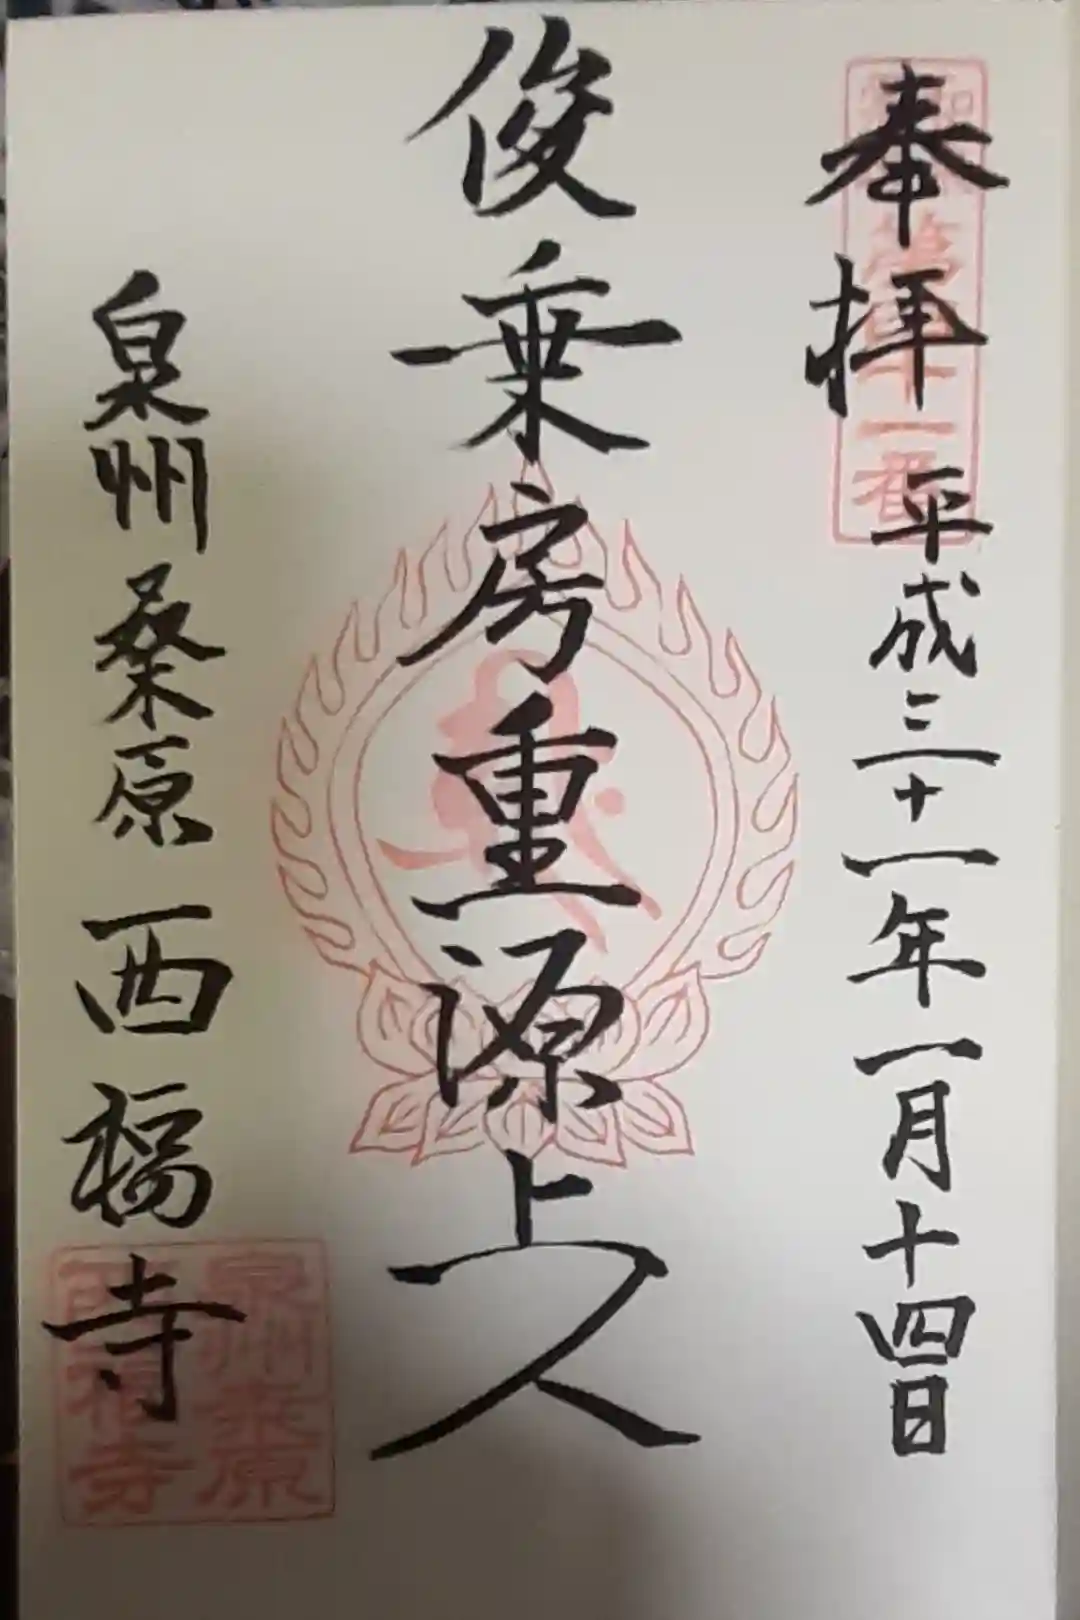 奉拝
平成三十一年一月十四日
俊乗房重源上人
泉州桑原西福寺
泉州桑原
西福寺